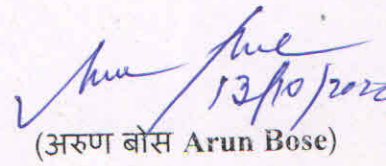 13/10/2022
(अरुण बोस Arun Bose)